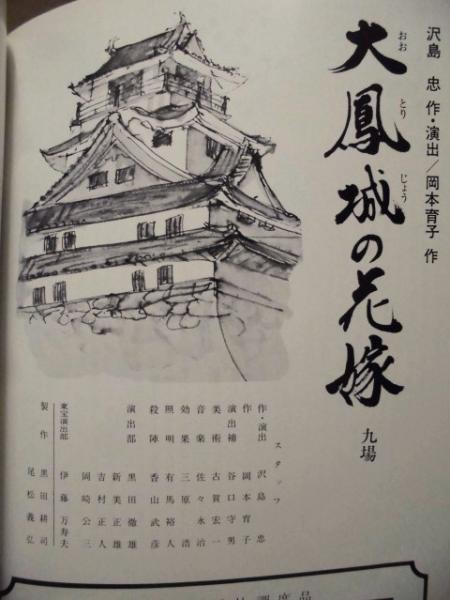 沢島 忠 作・演出／岡本育子 作
大鳳城の花嫁 九場
おお とり じょう
スタッフ
作・演出 沢島 忠
作 岡本育子
演出補 谷口守男
美術 古賀宏一
音楽 佐々永治
効果 三原 浩
照明 有馬裕人
殺陣 香山武彦
演出部 黒田徹雄
新美正雄
吉村正人
岡崎公三
東宝演出部 伊藤万寿夫
製作 黒田耕司
尾松義弘
調度品